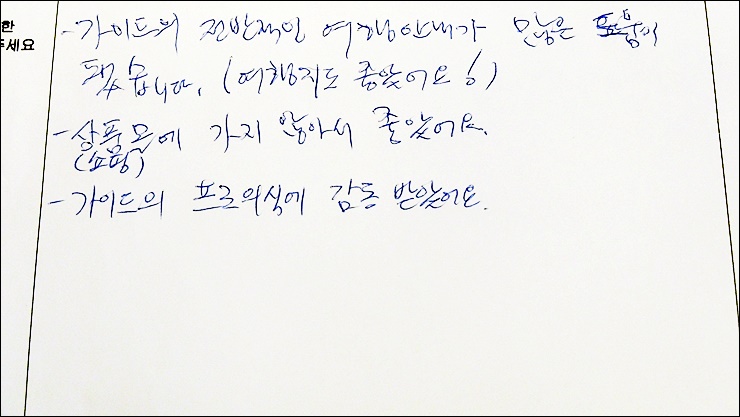 한
주세요
- 가이드의 전반적인 여행안내가 많은 도움이
됐습니다. (여행지도 좋았어요!)
- 상품몰에 가지 않아서 좋았어요.
(쇼핑)
- 가이드의 프로의식에 감동 받았어요.